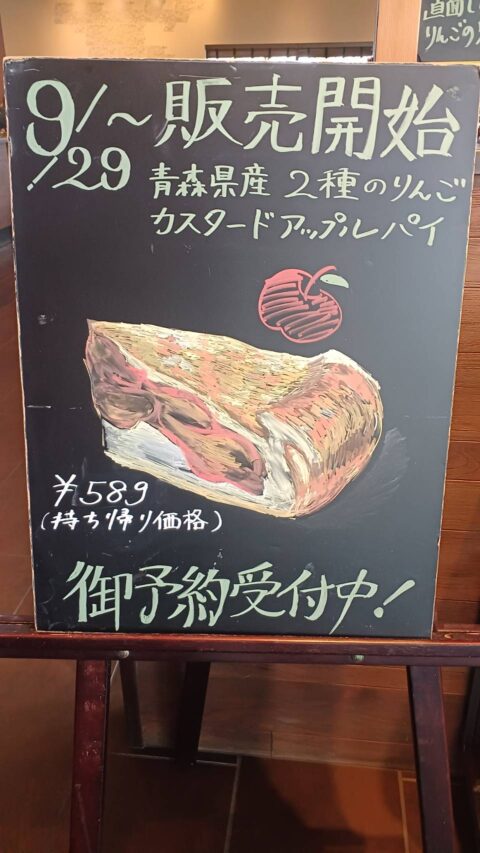 9/29～販売開始
青森県産 2種のりんご
カスタードアップルパイ
¥589
(持ち帰り価格)
御予約受付中!
りんごの